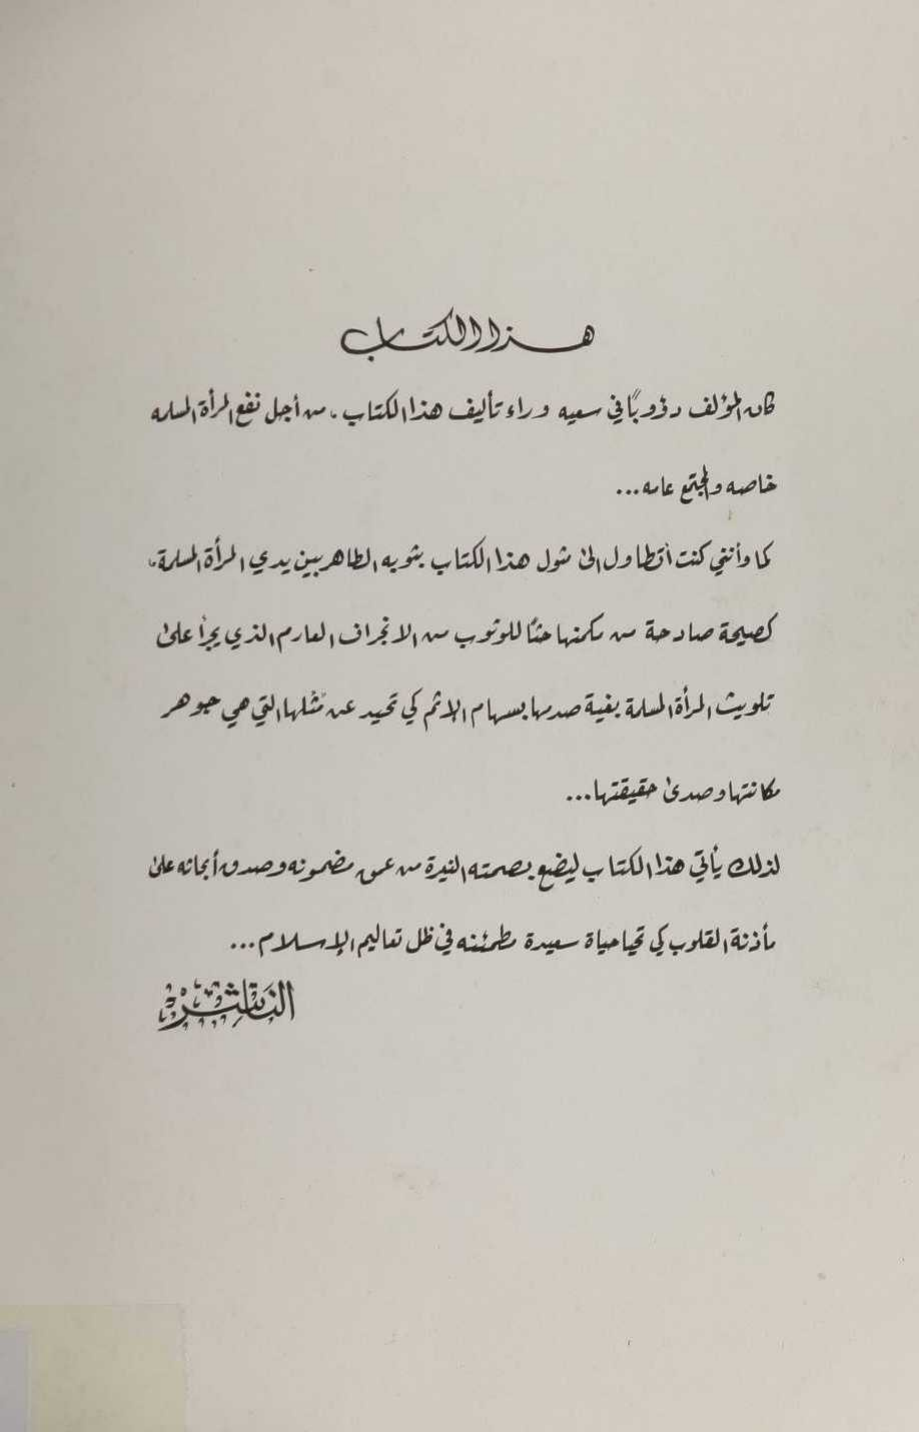 هذا الكتاب
كان المؤلف دؤوبًا في سعيه وراء تأليف هذا الكتاب، من أجل نفع المرأة المسلمه
خاصه والمجتمع عامه...
كما وأنني كنت أتطاول الى مثول هذا الكتاب بثوبه الطاهر بين يدي المرأة المسلمة،
كصيحة صادحة من مكمنها حثًا للوثوب من الانجراف العارم الذي يجرأ على
تلويث المرأة المسلمة بغية صدمها بسهام الإثم كي تحيد عن مُثلها التي هي جوهر
مكانتها وصدى حقيقتها...
لذلك يأتي هذا الكتاب ليضع بصمته النيرة من عمق مضمونه وصدق أبحاثه على
مأذنة القلوب كي تحيا حياة سعيدة مطمئنه في ظل تعاليم الإسلام...
الناشر